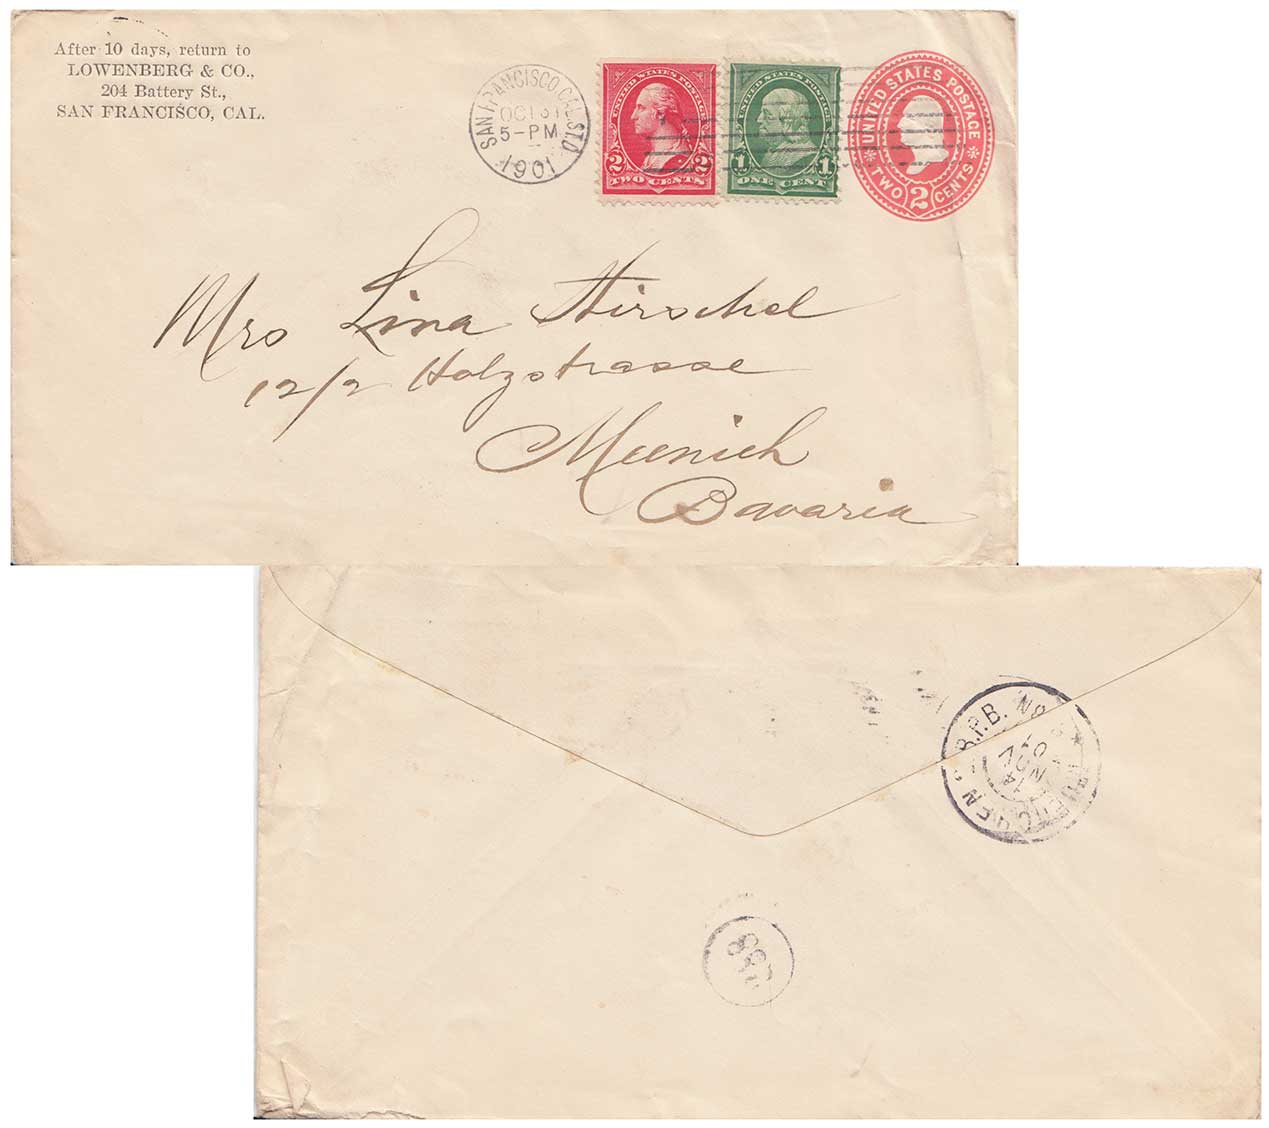 After 10 days, return to
LOWENBERG & CO.,
204 Battery St.,
SAN FRANCISCO, CAL.
SAN FRANCISCO, CAL. STA. D.
OCT 31
5-PM
1901
UNITED STATES POSTAGE
2 2
TWO CENTS
UNITED STATES POSTAGE
1 1
ONE CENT
UNITED STATES POSTAGE
TWO 2 CENTS
Mrs Lina Hirschel
12/2 Holzstrasse
Munich
Bavaria
MUENCHEN B.P.B. No
14
NOV